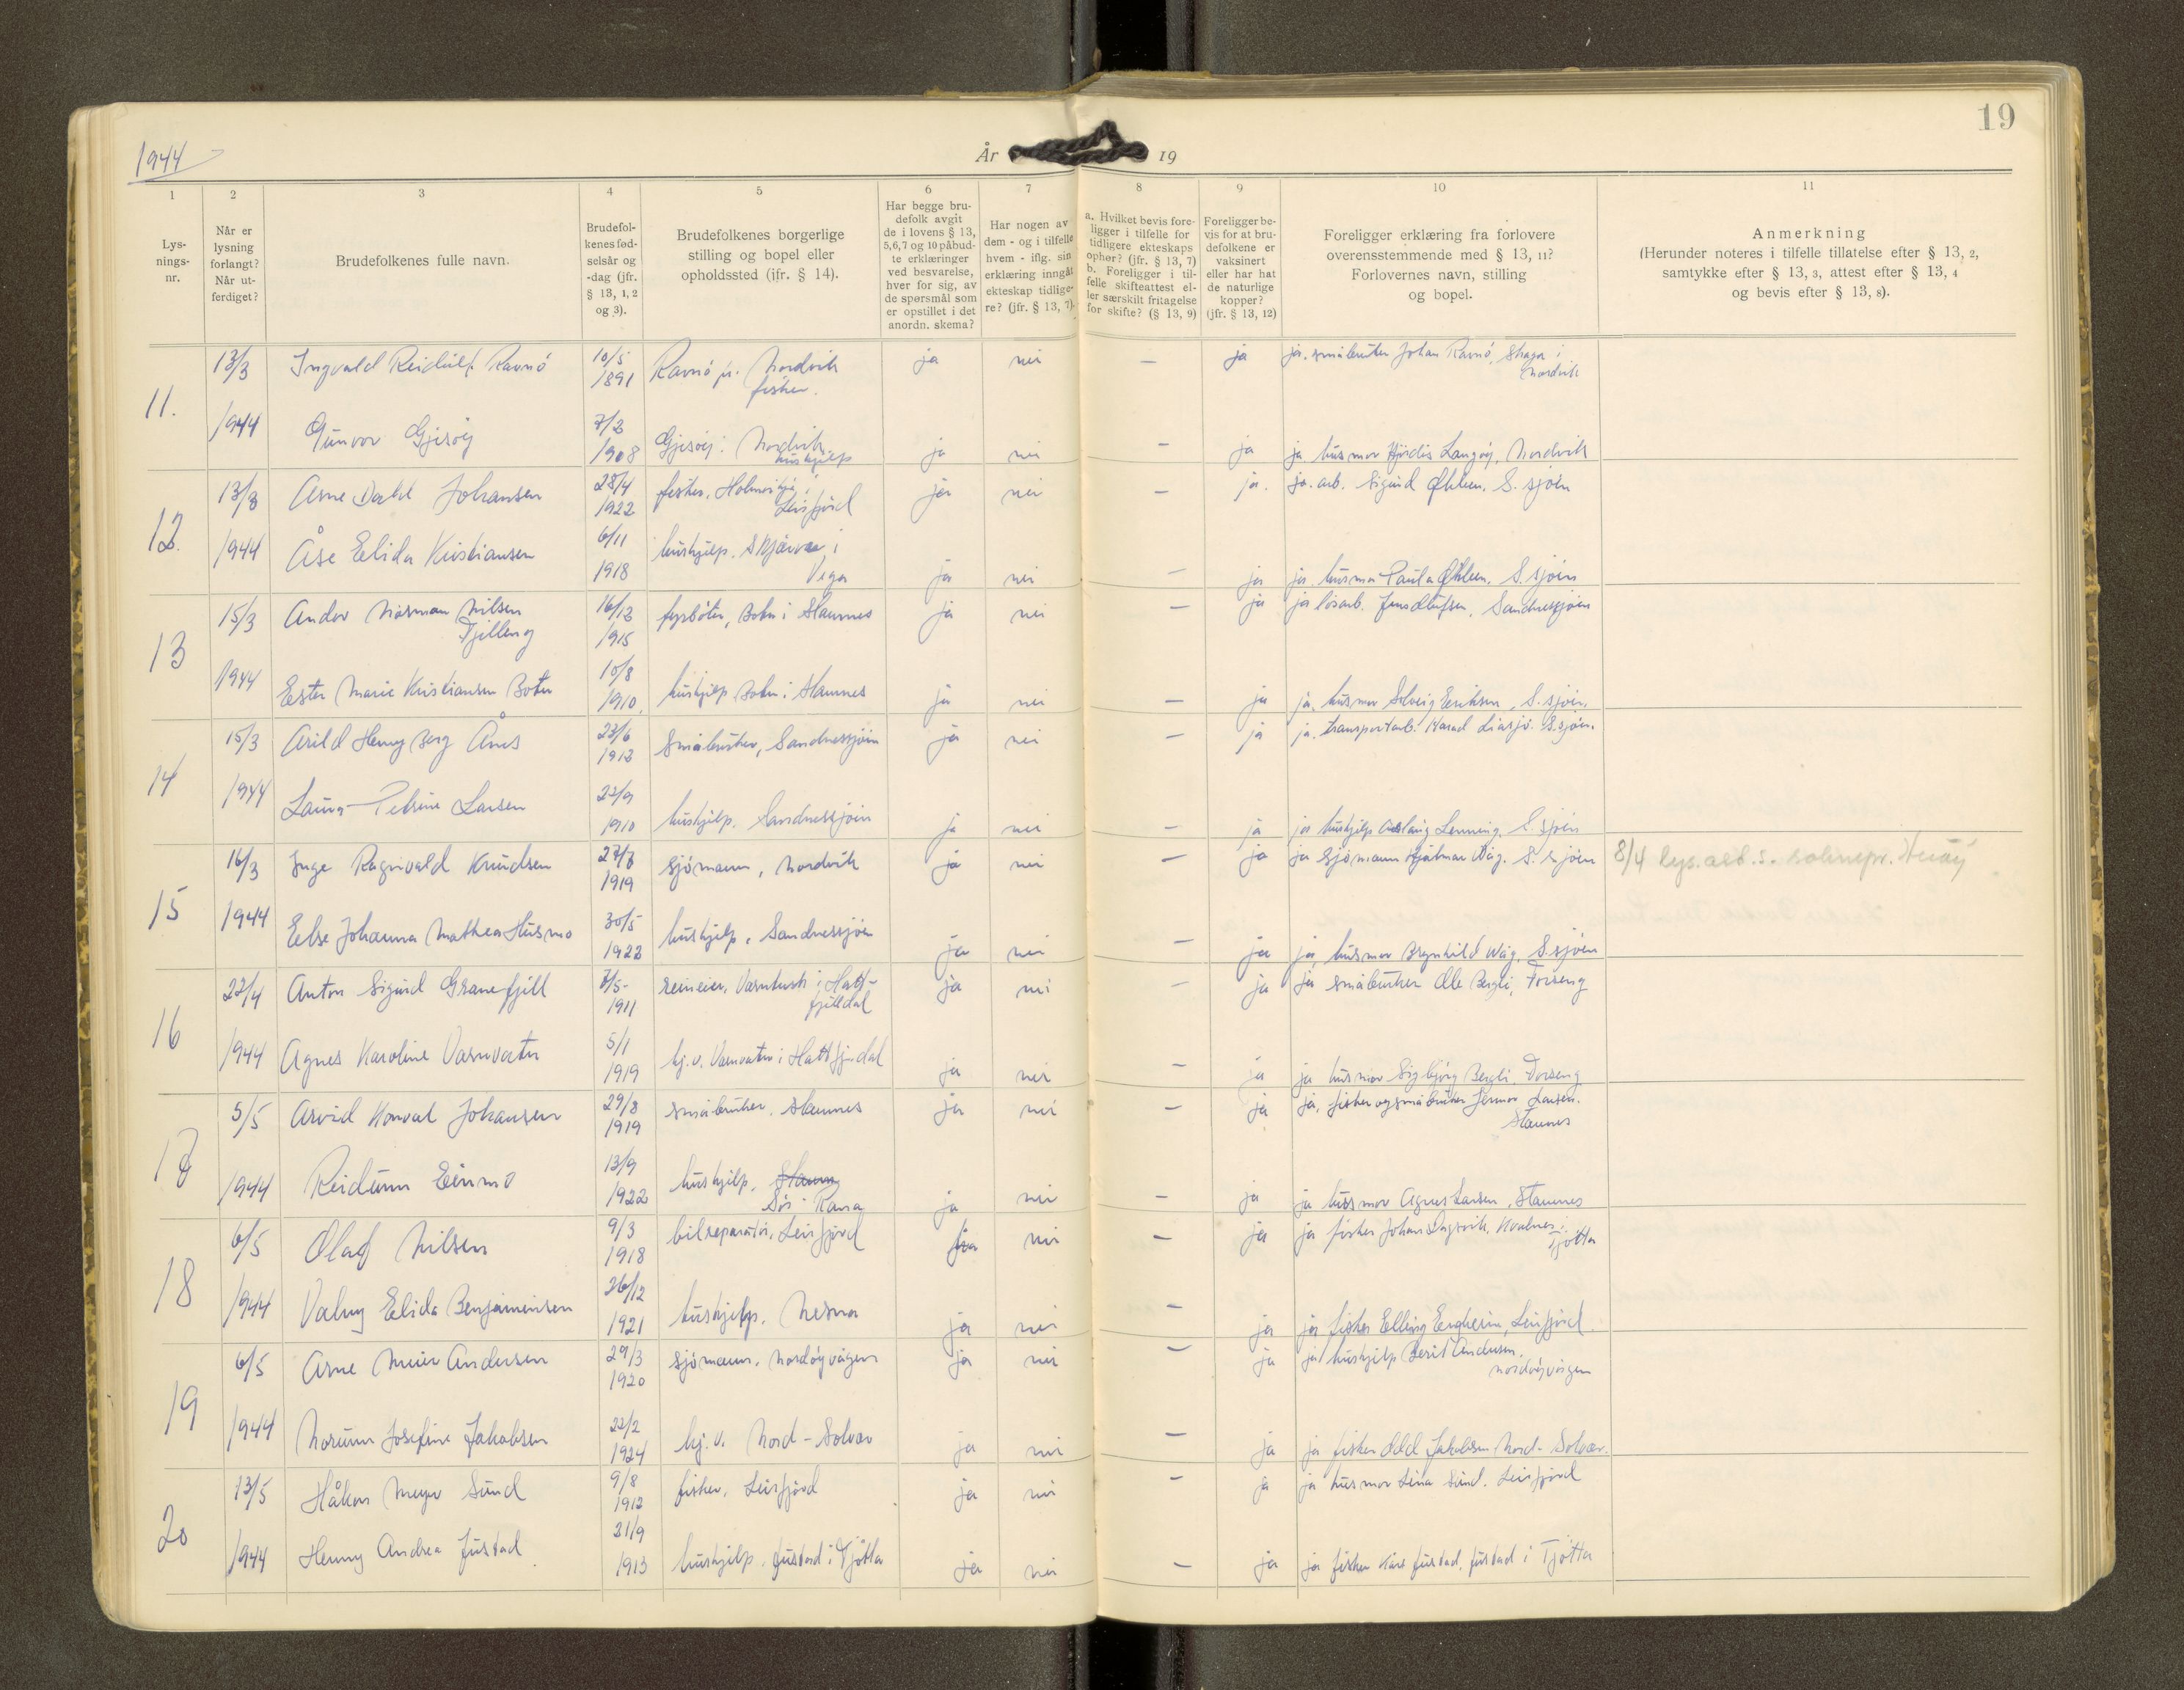 19
1944
År 19
1 2 3 4 5 6 7 8 9 10 11
Lys-
nings-
nr.
Når er
lysning
forlangt?
Når ut-
ferdiget?
Brudefolkenes fulle navn.
Brudefol-
kenes fød-
selsår og
-dag (jfr.
§ 13, 1, 2
og 3).
Brudefolkenes borgerlige
stilling og bopel eller
opholdssted (jfr. § 14).
Har begge bru-
defolk avgit
de i lovens § 13,
5,6,7 og 10 påbud-
te erklæringer
ved besvarelse,
hver for sig, av
de spørsmål som
er opstillet i det
anordn. skema?
Har nogen av
dem - og i tilfelle
hvem - iflg. sin
erklæring inngåt
ekteskap tidlige-
re? (jfr. § 13, 7).
a. Hvilket bevis fore-
ligger i tilfelle for
tidligere ekteskaps
ophør? (jfr. § 13, 7)
b. Foreligger i til-
felle skifteattest el-
ler særskilt fritagelse
for skifte? (§ 13, 9)
Foreligger be-
vis for at bru-
defolkene er
vaksinert
eller har hat
de naturlige
kopper?
(jfr. § 13, 12)
Foreligger erklæring fra forlovere
overensstemmende med § 13, 11?
Forlovernes navn, stilling
og bopel.
Anmerkning
(Herunder noteres i tilfelle tillatelse efter § 13, 2,
samtykke efter § 13, 3, attest efter § 13, 4
og bevis efter § 13, 8).
11. 13/3 Ingvald Reidulf Ravnö 10/5 1891 Ravnö pr. Nordvik fisker. ja nei — ja ja. småbruker Johan Ravnö, Skaga i Nordvik
1944 Gunvor Gjesöy 7/2 1908 Gjesöy i Nordvik hushjelp ja nei — ja ja. husmor Hjördis Langöy, Nordvik
12. 13/3 Arne Dahl Johansen 28/4 1922 fisker, Leirfjord ja nei — ja. ja. arb. Sigurd Øhlen. S. sjöen
1944 Åse Elida Kristiansen 6/11 1918 hushjelp. Skjærvær i Vega ja nei — ja ja. husmor Paula Øhlen. S. sjöen
13 15/3 Andor Norman Nilsen Fjelleng 16/12 1915 fyrböter, Botn i Stamnes ja nei — ja ja lösarb. Sandnessjöen
1944 Ester Marie Kristiansen Boten 10/8 1910. hushjelp Botn i Stamnes ja nei — ja ja. husmor Solveig Eriksen, S. sjöen.
14 15/3 Arild Henry Berg Ånes 23/6 1912 Småbruker, Sandnessjöen ja nei — ja ja. transportarb. S. sjöen.
1944 Laura Petrine Larsen 23/9 1910 hushjelp. Sandnessjöen ja nei — ja ja hushjelp Aslaug Lenning, S. sjöen
15 16/3 Inge Ragnvald Knudsen 27/7 1919 sjömann, Nordvik ja nei — ja ja sjömann Hjalmar Våg. S. sjöen 8/4 lys. att. s. sokneprest. Heröy
1944 Else Johanna Mathea Husmo 30/5 1922 hushjelp, Sandnessjöen ja nei — ja ja, husmor Brynhild Våg. S. sjöen
16 22/4 Anton Sigurd Granefjell 7/5- 1911 reineier, Hatt-
fjelldal ja nei — ja ja småbruker Ole Bergli, Forseng
1944 Agnes Karoline Varnvatn 5/1 1919 hj. v. Varnvatn i Hattfj. dal ja nei — ja ja husmor Sigbjörg Bergli, Forseng
17 5/5 Arvid Konval Johansen 29/8 1919 småbruker. Stamnes ja nei — ja ja, fisker og småbruker Larsen. Stamnes
1944 Reidunn Einmo 13/9 1922 hushjelp, Stamn Sör-Rana ja nei — ja ja husmor Agnes Larsen, Stamnes
18 6/5 Olaf Nilsen 9/3 1918 bilreparatör, Leirfjord ja nei — ja ja fisker Johans Dagsvik, Kvalnes i Tjötta
1944 Valny Elida Benjaminsen 26/12 1921 hushjelp. Nesna ja nei — ja ja fisker Elling Engheim, Leirfjord.
19 6/5 Arne Meier Andersen 29/3 1920 sjömann, Nordöyvågen ja nei — ja ja hushjelp Berit Andersen. Nordöyvågen
1944 Norunn Josefine Jakobsen 22/2 1924 hj. v. Nord-Solvær ja nei — ja ja fisker Odd Jakobsen Nord-Solvær.
20 13/5 Håkon Meyer Sund 9/8 1912 fisker, Leirfjord ja nei — ja ja husmor Lina Sund. Leirfjord
1944 Henny Andrea Justad 21/9 1913 hushjelp. Justad i Tjötta ja nei — ja ja fisker Kåre Justad. Justad i Tjötta